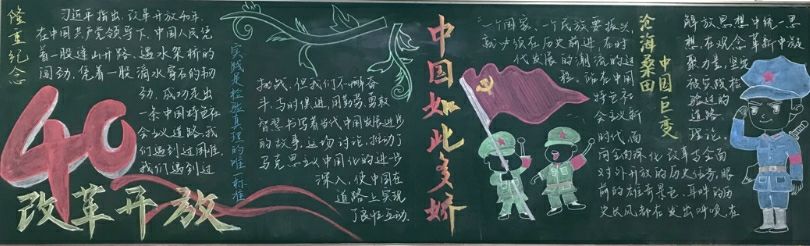 隆重纪念
习近平指出,改革开放40年,
在中国共产党领导下,中国人民凭
着一股逢山开路、遇水架桥的
闯劲,凭着一股滴水穿石的韧
劲,成功走出
一条中国特色社
会主义道路。我
们遇到过困难,
我们遇到过
40
改革开放
实践是检验真理的唯一标准
挑战,但我们不懈奋
斗、与时俱进,用勤劳、勇敢、
智慧书写着当代中国发展进步
的故事。
马克思主义中国化的进步
深入,使中国在
道路上实现
了良性互动.
中国如此多娇
一个国家、一个民族要振兴,
就必须在历史前进、
时代发展的潮流
中国
特色社
会主义新
时代,面
改革与全面
对外开放的历史任务,眼
前的雄奇景色、耳畔的历
史长风都在发出呼唤在
沧海桑田
中国巨变
解放思想中统一思
想,在观念革新中凝
聚力量,坚定
被实践检
验过的
道路
理论。